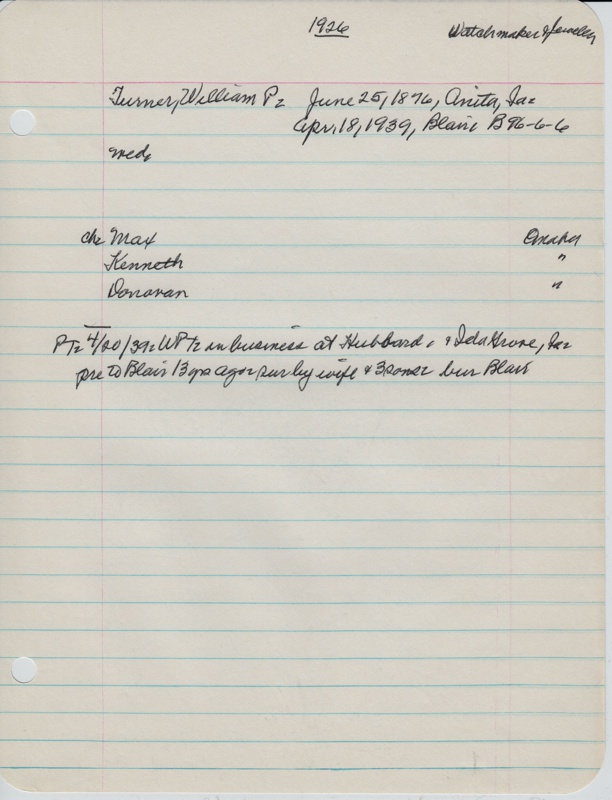 1926 Watchmaker & Jeweler
Turner, William P= June 25, 1876, Anita, Ia=
Apr. 18, 1939, Blair B96-6-6
med=
ch= Max Omaha
Kenneth "
Donovan "
PT= 4/20/39= WPT= in business at Hubbard, & Ida Grove, Ia=
pre to Blair 13 yrs ago= sur by wife & 3 sons= bur Blair